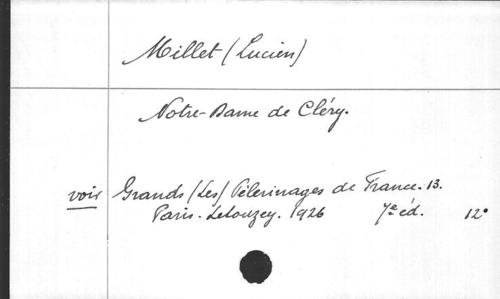 Millet (Lucien)
Notre-Dame de Cléry.
voir Grands (Les) Pèlerinages de France. 13.
Paris. Letouzey. 1926 7e éd. 12°